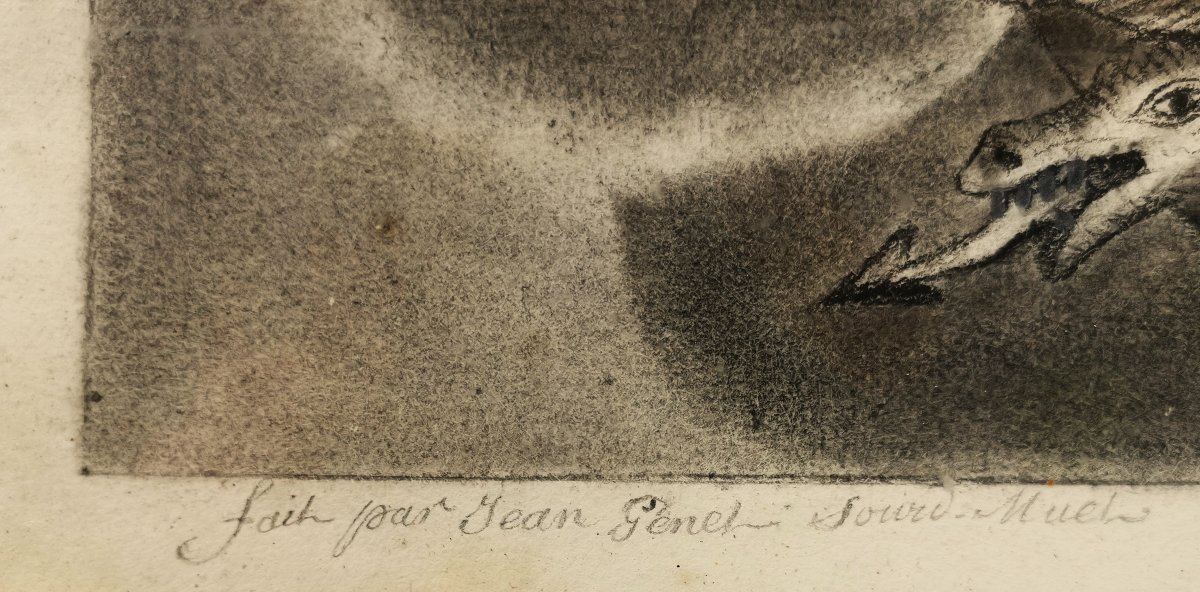 fait par Jean Genet Sourd-Muet